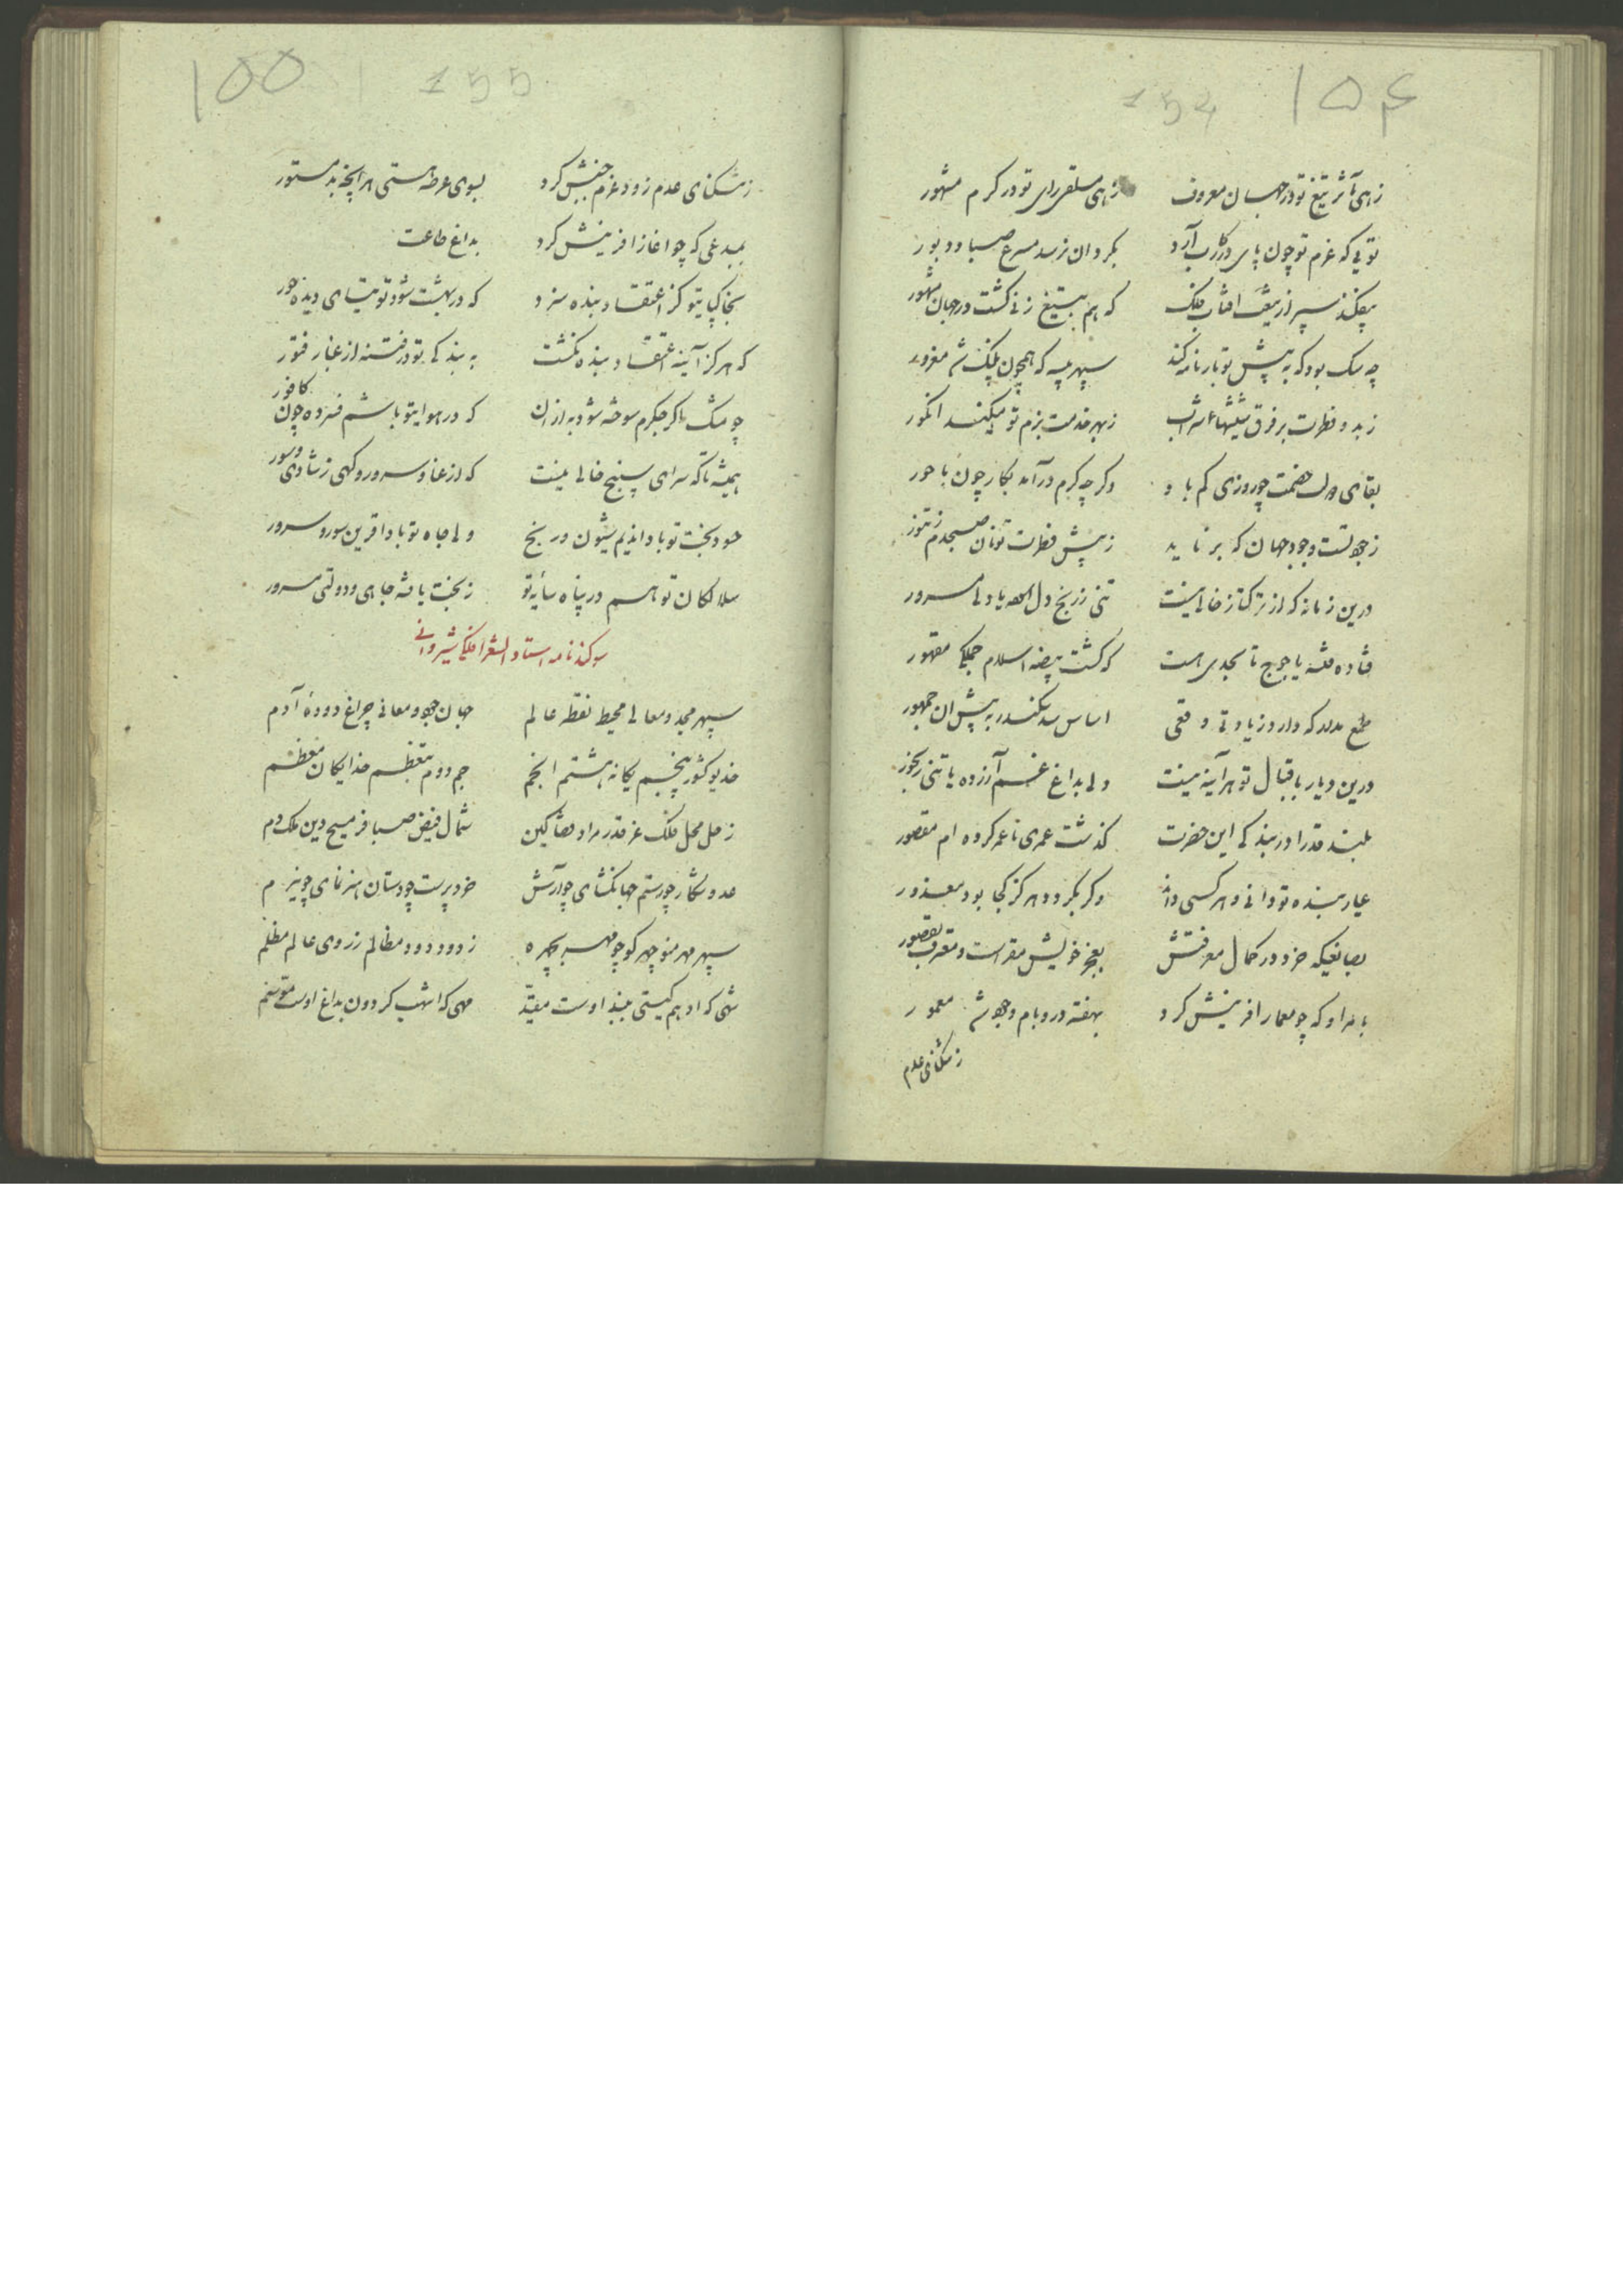 ۱۵۴
154
زهی مآثر تیغ تو در جهان معروف زهی مسلقی رای تو در کرم مشهور
تویی که عزم تو چون پای در رکاب آرد بکرد ان نرسد مسرع صبا و دبور
بیفکند سپر از تیغت افتاب فلک که هم بتیغ زنی کشت در جهان مشهور
چه سک بود که به پیش تو بارنامه کند سپهر پیسه که همچون پلنک شد مغرور
زبد و فطرت بر فرق شیشهاء شراب زبهر خدمت بزم تو میکند انکور
بقای خصمت چو روزی کم باد وکر چه کرم درآمد بکار چون باحور
زجود تست وجود جهان که بر ناید زپیش فطرت تو نان صبحدم زتنور
درین زمانه که از ترکتاز خالی نیست تنی زرنج دل الحه یا دلی مسرور
فتاده فتنه یاجوج تا بحدی هست که کشت بیضه اسلام جملکی مقهور
طمع مدار که دارد زیادتی وقعی اساس سد سکندر به پیش ان جمهور
درین دیار باقبال تو هرآینه نیست دلی بداغ غم آزرده یا تنی رنجور
بلند قدرا در بندکی این حضرت کذشت عمری تا عمر کرده ام مقصور
عیار بنده تو دانی و هر کسی داند وکر بکرود هرکز کجا بود معذور
بصانعیکه خرد در کمال معرفتش بعجز خویش مقر است و معترف بقصور
بامر او که چو معمار افرینش کرد بهفته در و بام وجود شد معمور
زتنکنای عدم
۱۵۵
155
زتنکنای عدم زود عزم جنبش کرد بسوی عرصه هستی هرانچه بد مستور
بمبدعی که چو اغاز افرینش کرد بداغ طاعت
بخاکپایتو کز اعتقاد بنده سزد که در بهشت شود توتیای دیده حور
که هرکز آینه اعتقاد بنده نکشت به بندکی تو در فتنه از غبار فتور
چو مشک اکر جکرم سوخته شود به ازان که در هوایتو باشم فسرده چون کافور
همیشه تا که سرای سپنج خالی نیست که از عنا و سرور و کهی زشادی و سور
حسود بخت تو بادا ندیم شیون و رنج ولی جاه تو بادا قرین سور و سرور
سلالکان تو هم در پناه سایه تو زبخت یافته جاهی و دولتی مسرور
سوکندنامه استاد الشعرا فلکی شیروانی
سپهر مجد و معالی محیط نقطه عالم جهان جود و معانی چراغ دوده آدم
خدیو کشور پنجم یکانه هشتم انجم جم دوم بتعظم خدایکان معظم
زحل محل فلک عز قدر مراد قضا کین شمال فیض صبا فر مسیح دین ملک دم
عدو شکار چو رستم جهانکشای چو آرش خرد پرست چو دستان هنرنمای چو نیرم
سپهر مهر منوچهر کو چو مهر بچهره زدود دود مظالم زروی عالم مظلم
شهی که ادهم کیتی ببند اوست مقید مهی که اشهب کردون بداغ اوست موسم